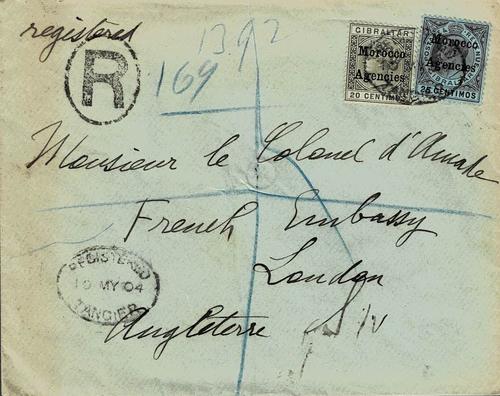 registered
1392
169
R
GIBRALTAR
Morocco
Agencies
20 CENTIMOS
Morocco
Agencies
GIBRALTAR
25 CENTIMOS
Monsieur le Colonel d'Amade
French Embassy
London
Angleterre
REGISTERED
10 MY 04
TANGIER